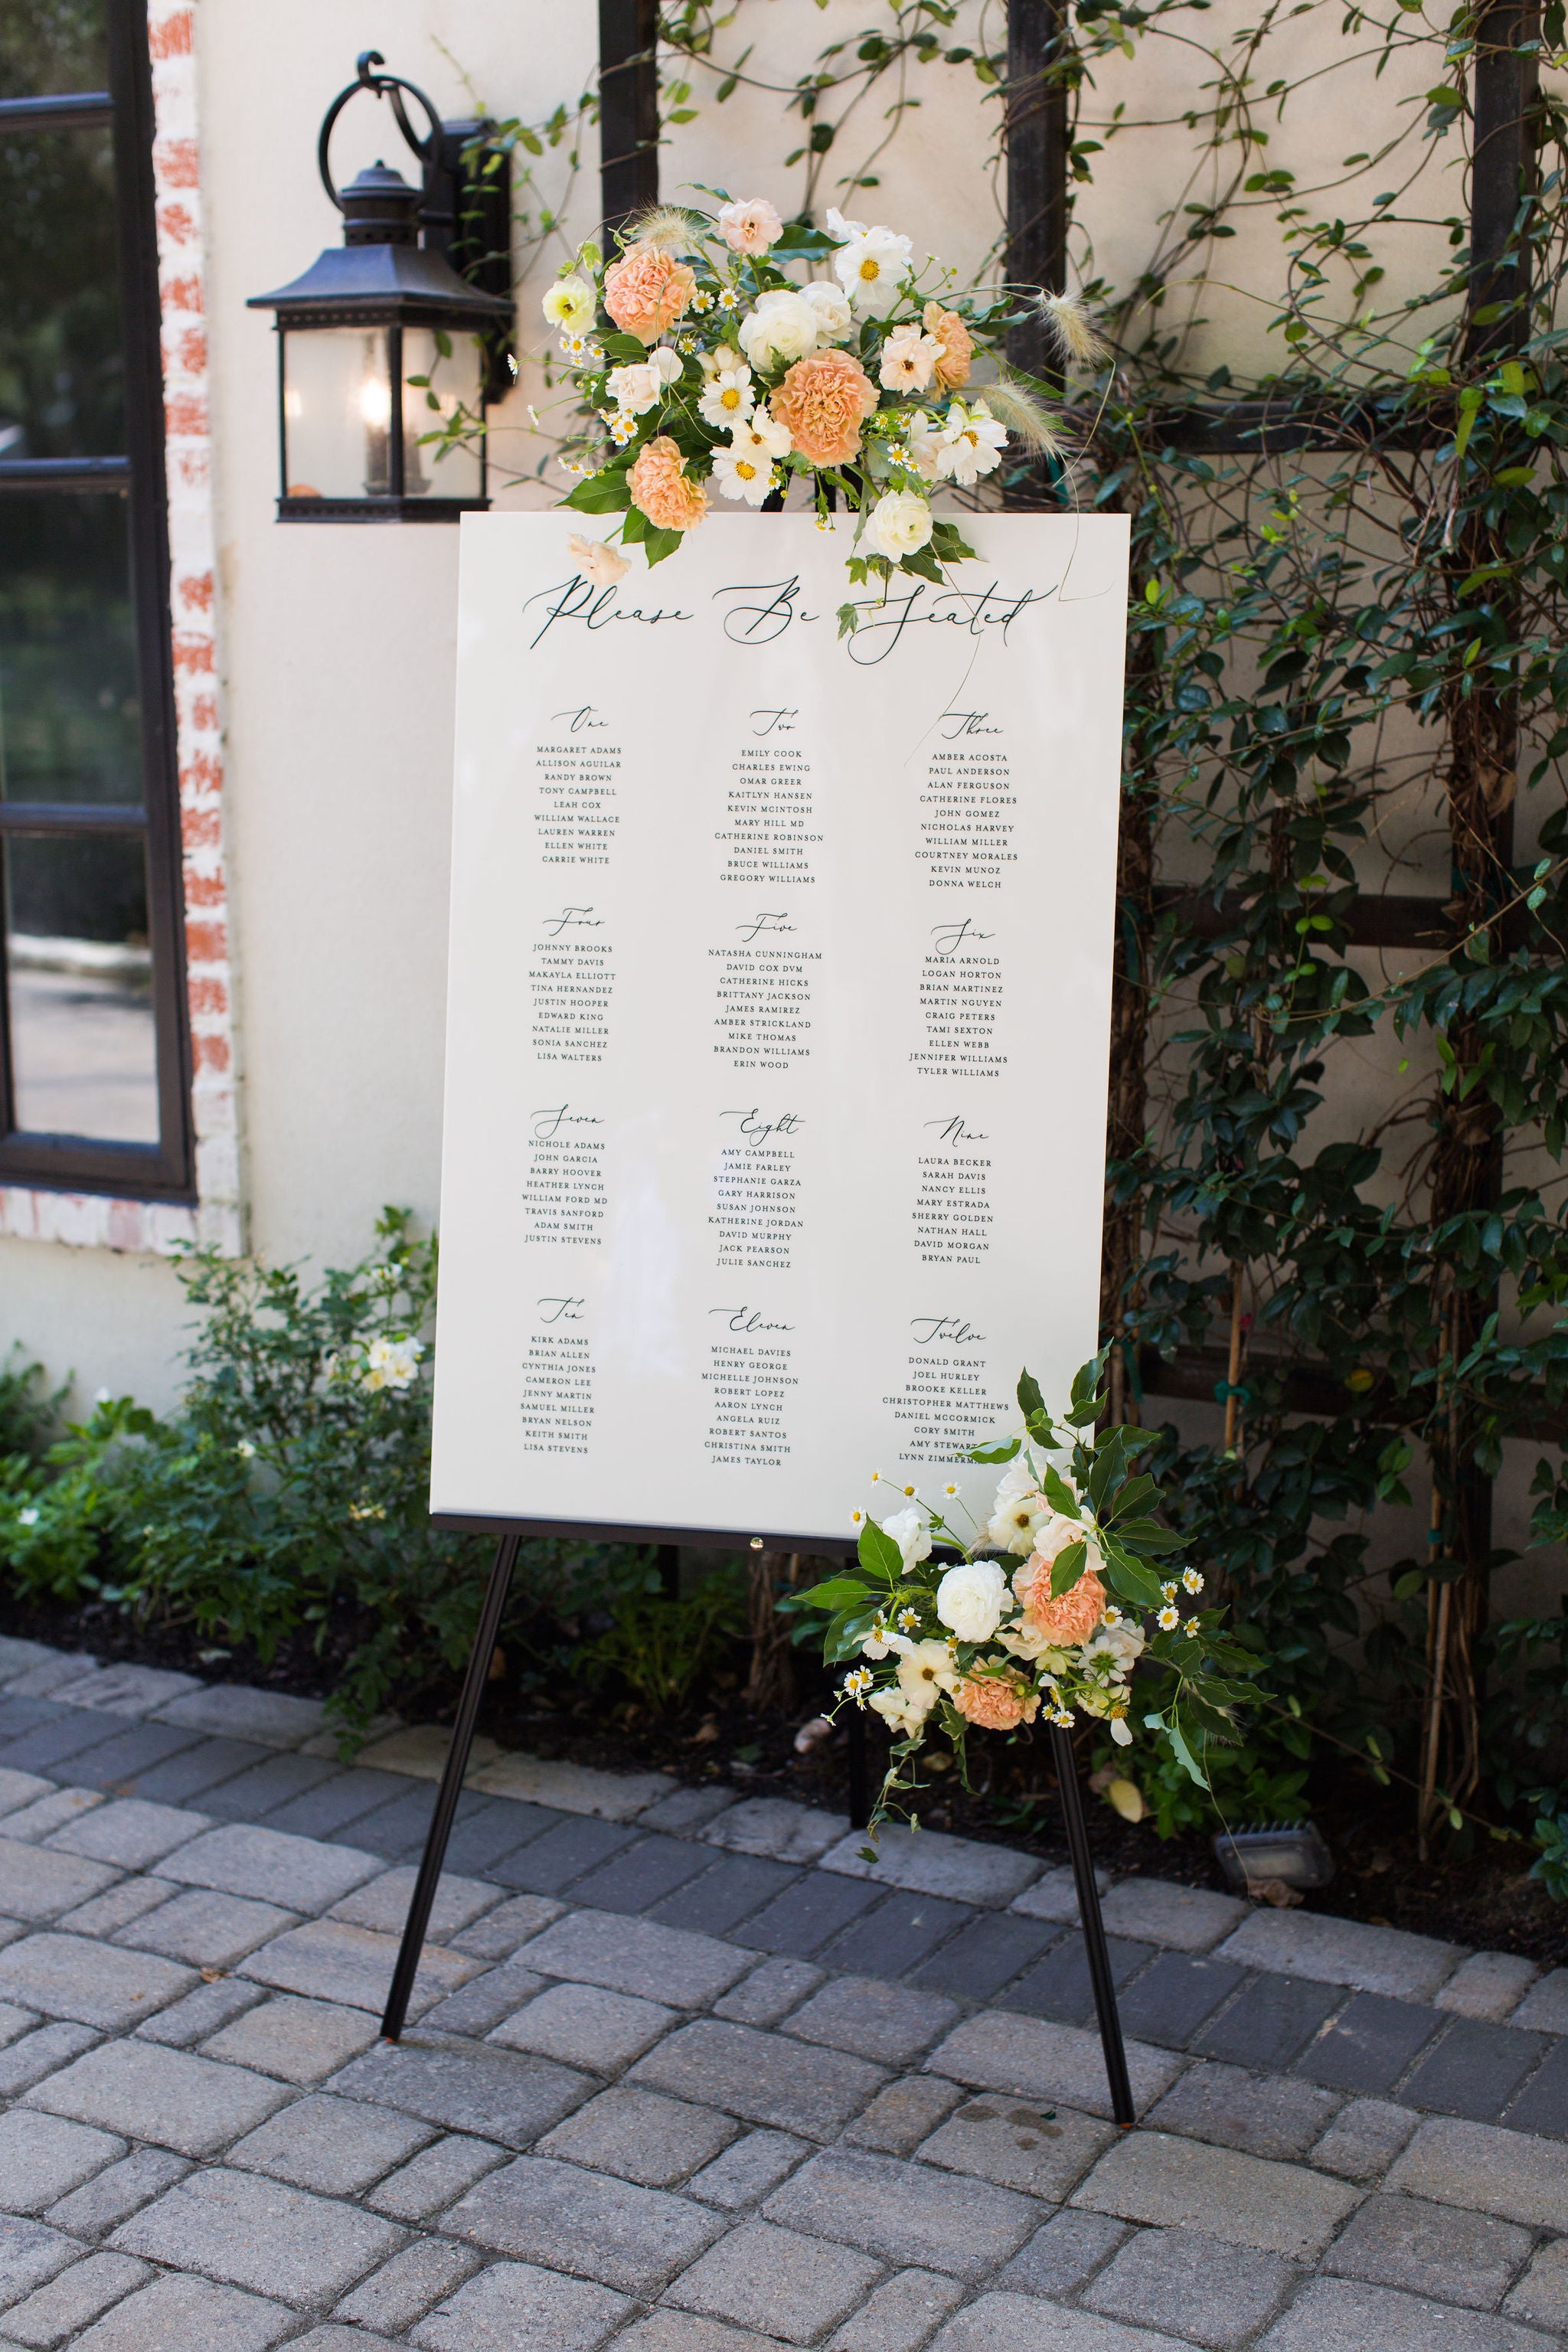 Please Be Seated
One
MARGARET ADAMS
ALLISON AGUILAR
RANDY BROWN
TONY CAMPBELL
LEAH COX
WILLIAM WALLACE
LAUREN WARREN
ELLEN WHITE
CARRIE WHITE
Two
EMILY COOK
CHARLES EWING
OMAR GREER
KAITLYN HANSEN
KEVIN MCINTOSH
MARY HILL MD
CATHERINE ROBINSON
DANIEL SMITH
BRUCE WILLIAMS
GREGORY WILLIAMS
Three
AMBER ACOSTA
PAUL ANDERSON
ALAN FERGUSON
CATHERINE FLORES
JOHN GOMEZ
NICHOLAS HARVEY
WILLIAM MILLER
COURTNEY MORALES
KEVIN MUNOZ
DONNA WELCH
Four
JOHNNY BROOKS
TAMMY DAVIS
MAKAYLA ELLIOTT
TINA HERNANDEZ
JUSTIN HOOPER
EDWARD KING
NATALIE MILLER
SONIA SANCHEZ
LISA WALTERS
Five
NATASHA CUNNINGHAM
DAVID COX DVM
CATHERINE HICKS
BRITTANY JACKSON
JAMES RAMIREZ
AMBER STRICKLAND
MIKE THOMAS
BRANDON WILLIAMS
ERIN WOOD
Six
MARIA ARNOLD
LOGAN HORTON
BRIAN MARTINEZ
MARTIN NGUYEN
CRAIG PETERS
TAMI SEXTON
ELLEN WEBB
JENNIFER WILLIAMS
TYLER WILLIAMS
Seven
NICHOLE ADAMS
JOHN GARCIA
BARRY HOOVER
HEATHER LYNCH
WILLIAM FORD MD
TRAVIS SANFORD
ADAM SMITH
JUSTIN STEVENS
Eight
AMY CAMPBELL
JAMIE FARLEY
STEPHANIE GARZA
GARY HARRISON
SUSAN JOHNSON
KATHERINE JORDAN
DAVID MURPHY
JACK PEARSON
JULIE SANCHEZ
Nine
LAURA BECKER
SARAH DAVIS
NANCY ELLIS
MARY ESTRADA
SHERRY GOLDEN
NATHAN HALL
DAVID MORGAN
BRYAN PAUL
Ten
KIRK ADAMS
BRIAN ALLEN
CYNTHIA JONES
CAMERON LEE
JENNY MARTIN
SAMUEL MILLER
BRYAN NELSON
KEITH SMITH
LISA STEVENS
Eleven
MICHAEL DAVIES
HENRY GEORGE
MICHELLE JOHNSON
ROBERT LOPEZ
AARON LYNCH
ANGELA RUIZ
ROBERT SANTOS
CHRISTINA SMITH
JAMES TAYLOR
Twelve
DONALD GRANT
JOEL HURLEY
BROOKE KELLER
CHRISTOPHER MATTHEWS
DANIEL MCCORMICK
CORY SMITH
AMY STEWART
LYNN